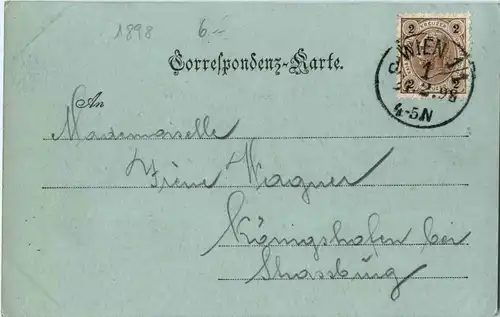 1898 6.-
Correspondenz-Karte.
2 KREUZER 2
WIEN 1/1
1
22.2.98
4-5.N
An
Mademoiselle
Irène Wagner
Königshofen bei
Strassburg